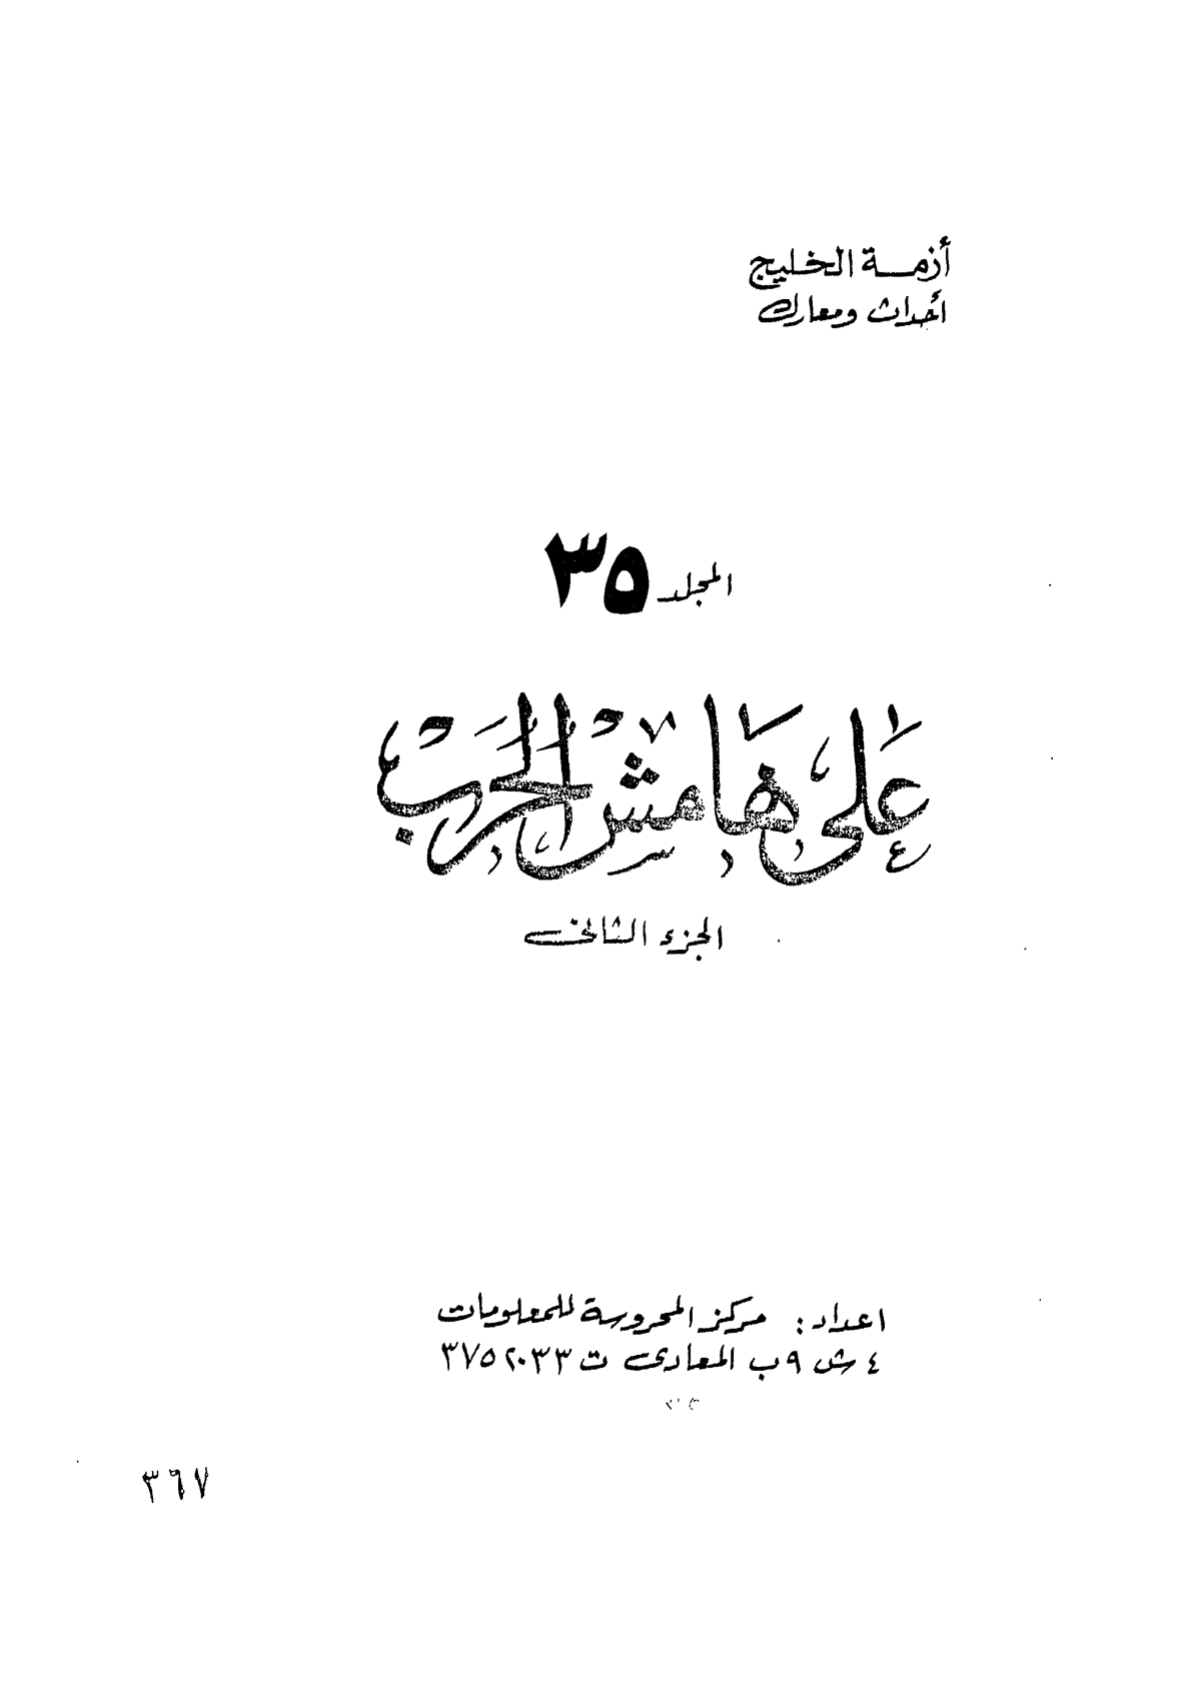 أزمة الخليج
أحداث ومعارك
المجلد ٣٥
على هامش الحرب
الجزء الثانى
اعداد: مركز المحروسة للمعلومات
٤ ش ٩ب المعادى ت ٣٧٥٢٠٣٣
٣٦٧